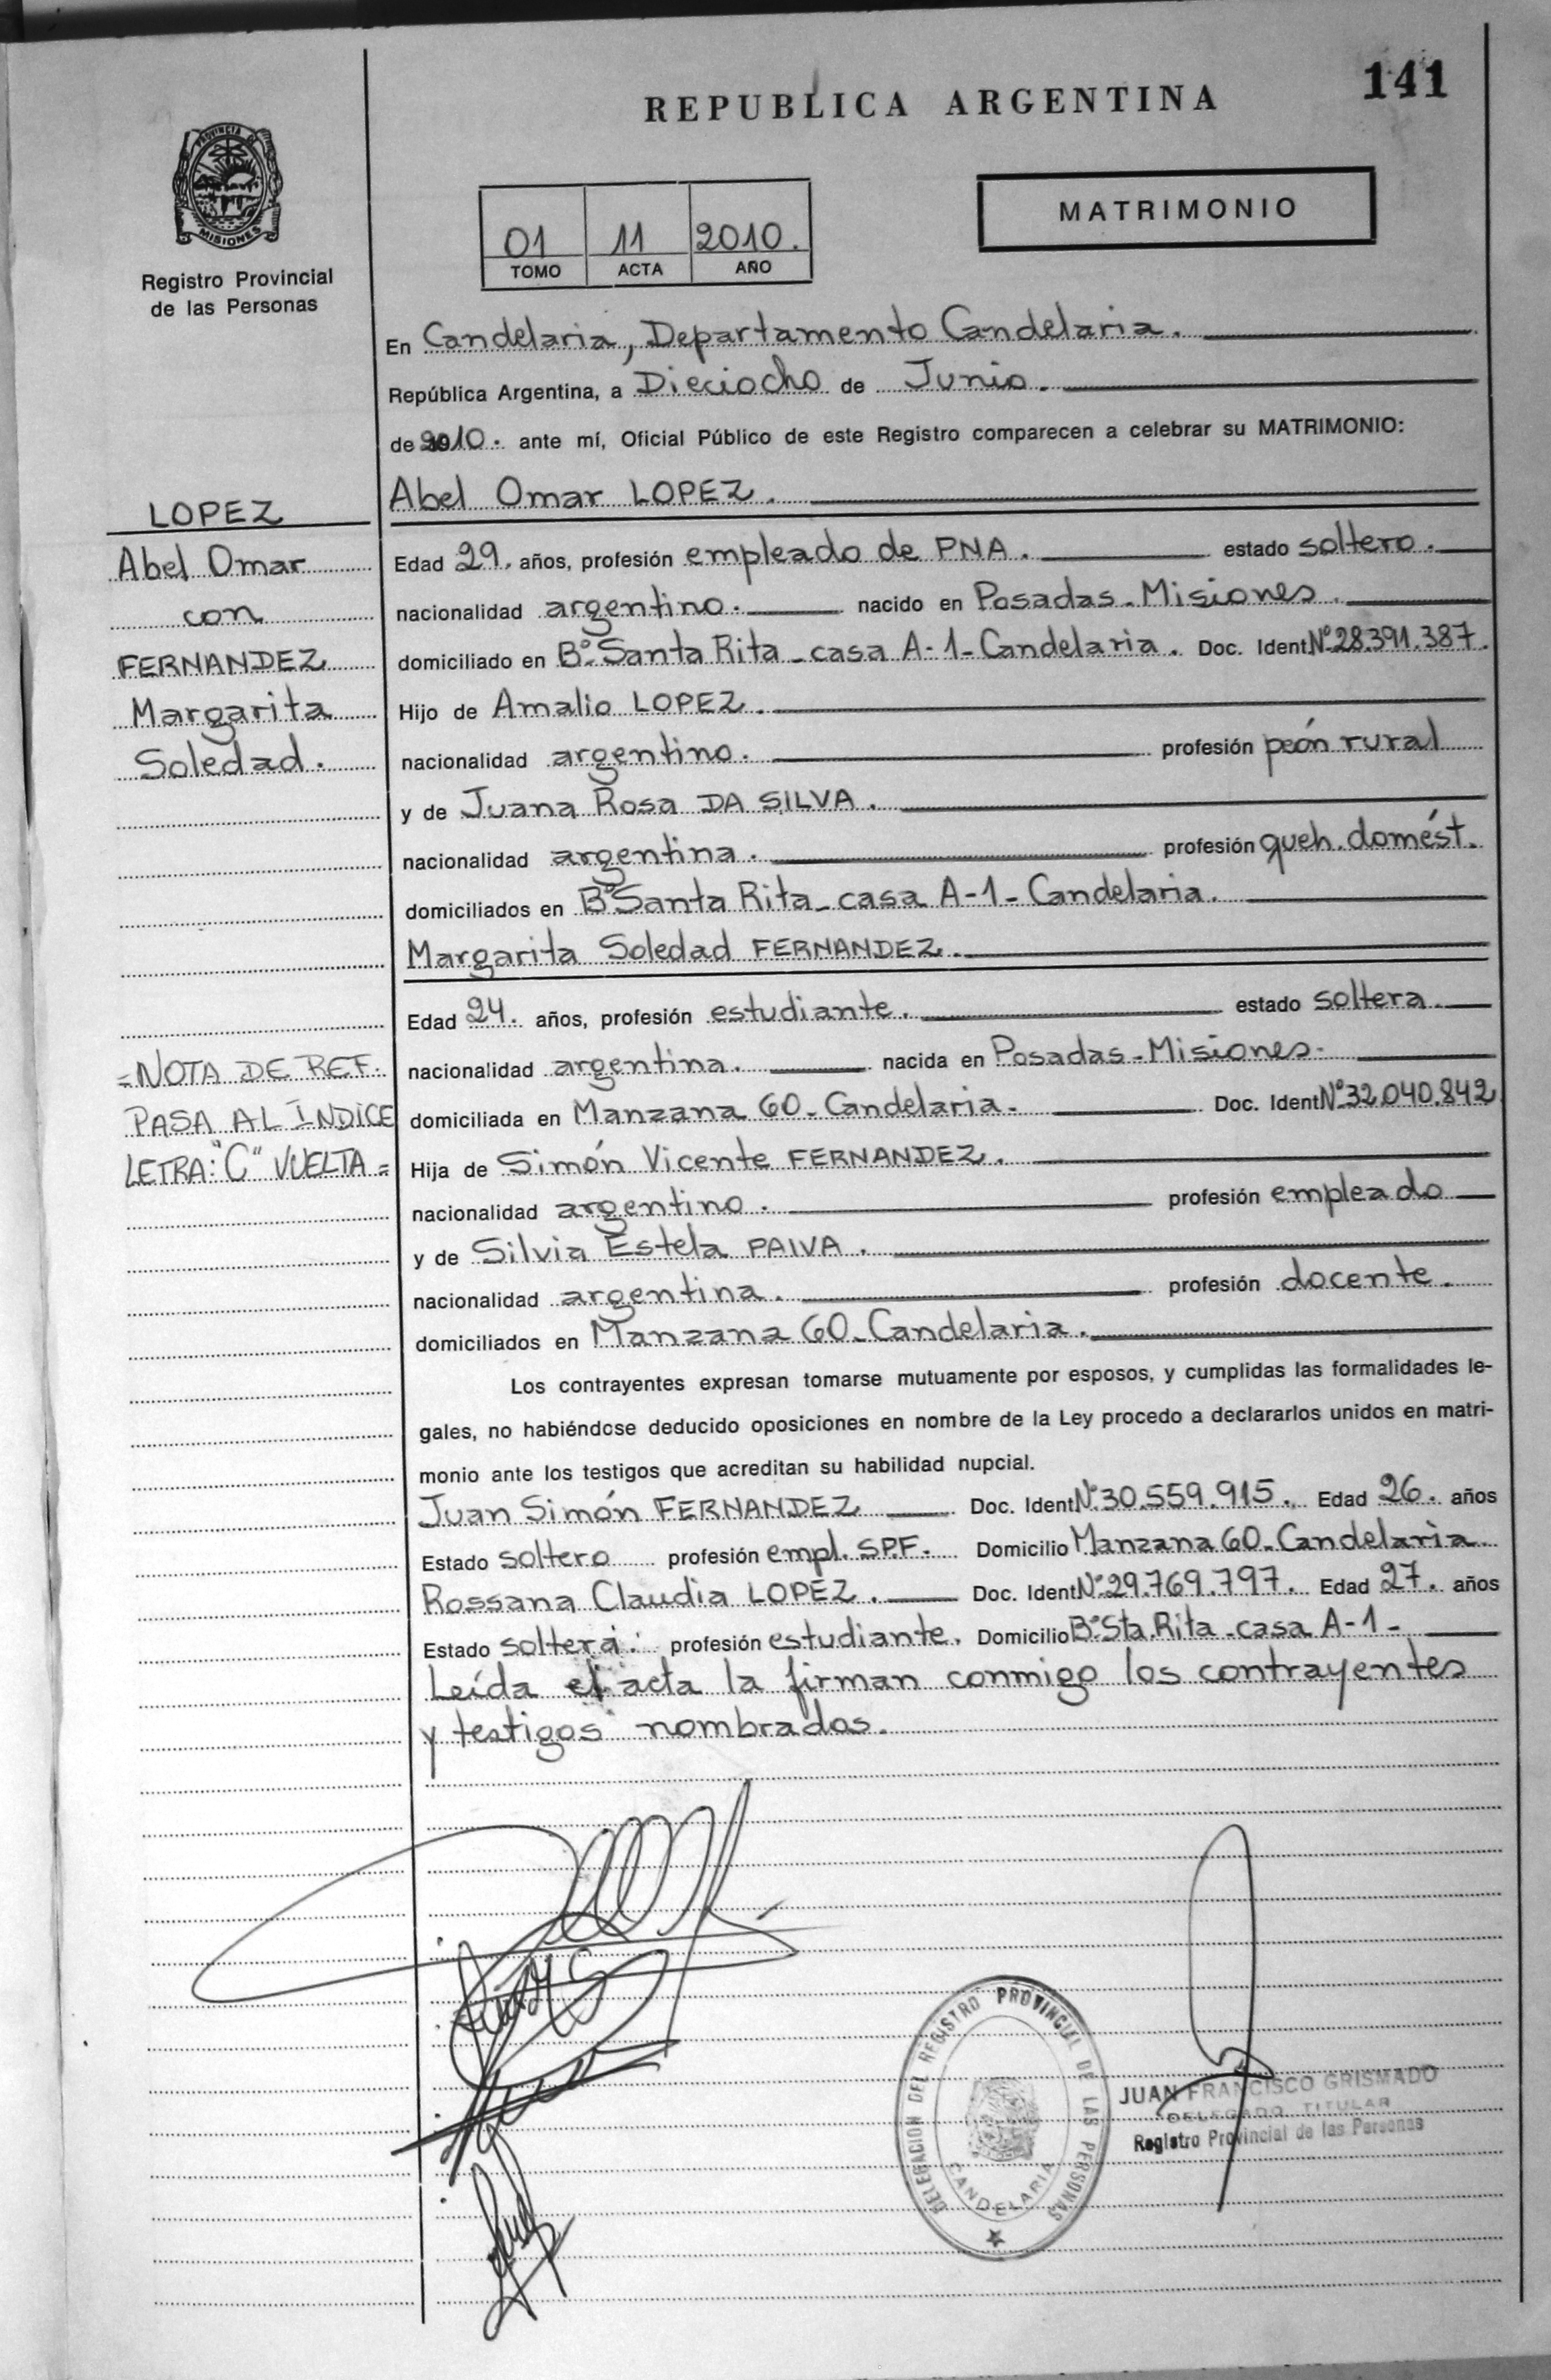 REPUBLICA ARGENTINA
141
PROVINCIA DE
MISIONES
Registro Provincial
de las Personas
01 11 2010.
TOMO ACTA AÑO
MATRIMONIO
En Candelaria, Departamento Candelaria.
República Argentina, a Dieciocho de Junio.
de 2010. ante mí, Oficial Público de este Registro comparecen a celebrar su MATRIMONIO:
LOPEZ
Abel Omar
con
FERNANDEZ
Margarita
Soledad.
Abel Omar LOPEZ.
Edad 29. años, profesión empleado de PNA. estado soltero.
nacionalidad argentino. nacido en Posadas-Misiones.
domiciliado en B° Santa Rita - casa A-1- Candelaria. Doc. Ident. N° 28.391.387.
Hijo de Amalio LOPEZ.
nacionalidad argentino. profesión peón rural
y de Juana Rosa DA SILVA.
nacionalidad argentina. profesión queh. domést.
domiciliados en B° Santa Rita - casa A-1- Candelaria.
Margarita Soledad FERNANDEZ.
Edad 24. años, profesión estudiante. estado soltera.
nacionalidad argentina. nacida en Posadas-Misiones-
domiciliada en Manzana 60- Candelaria- Doc. Ident. N° 32.040.842
Hija de Simón Vicente FERNANDEZ.
nacionalidad argentino. profesión empleado
y de Silvia Estela PAIVA.
nacionalidad argentina. profesión docente.
domiciliados en Manzana 60- Candelaria.
=NOTA DE REF.
PASA AL ÍNDICE
LETRA: "C" VUELTA=
Los contrayentes expresan tomarse mutuamente por esposos, y cumplidas las formalidades le-
gales, no habiéndose deducido oposiciones en nombre de la Ley procedo a declararlos unidos en matri-
monio ante los testigos que acreditan su habilidad nupcial.
Juan Simón FERNANDEZ Doc. Ident. N° 30.559.915. Edad 26. años
Estado soltero profesión empl. S.P.F. Domicilio Manzana 60- Candelaria
Rossana Claudia LOPEZ. Doc. Ident. N° 29.769.797. Edad 27. años
Estado soltera. profesión estudiante. Domicilio B° Sta. Rita - casa A-1-
Leída el acta la firman conmigo los contrayentes
y testigos nombrados.
DELEGACION DEL REGISTRO PROVINCIAL DE LAS PERSONAS
CANDELARIA
JUAN FRANCISCO GRISMADO
DELEGADO TITULAR
Registro Provincial de las Personas